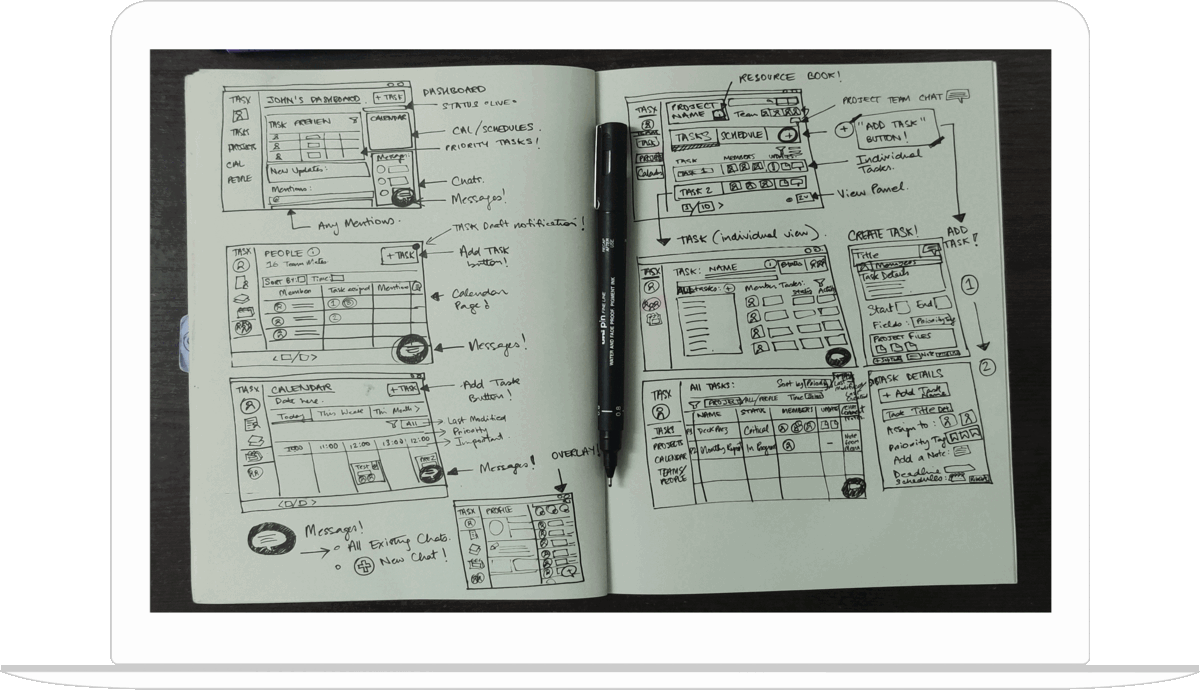 DASHBOARD
STATUS "LIVE"
CAL/SCHEDULES.
PRIORITY TASKS!
Chats.
Messages!
Any Mentions.
TASX
TASKS
CAL
PEOPLE
JOHN'S DASHBOARD
+ TASK
TASK PREVIEW
CALENDAR
New Updates:
Mentions:
TASK Draft notification!
Add TASK
button!
Calendar
Messages!
TASX
PEOPLE
16 Team Mates
+ TASK
SORT BY:
Time:
Member
Task assigned
1
2
Add Task
Button!
Last Modified
Priority
Important.
Messages!
TASX
CALENDAR
+ TASK
Date here:
Today
This Week
This Month >
All
11:00
12:00
13:00
12:00
Messages!
All Existing Chats.
New Chat!
OVERLAY!
TASX
PROFILE
RESOURCE BOOK!
PROJECT TEAM CHAT
"ADD TASK"
BUTTON!
Individual
Tasks.
View Panel.
TASX
PROJECT
NAME
Team
TASKS
SCHEDULE
+
TASK
MEMBERS
TASK 1
TASK 2
1/10 >
TASK (individual view).
TASX
TASK: NAME
Subtasks: +
Member Tasks:
Status
CREATE TASK!
ADD
TASK!
Title
Members
Task Details
Start
End
Fields:
PROJECT FILES
1
2
TASX
TASKS
PROJECTS
CALENDAR
TEAMS/
PEOPLE
ALL TASKS:
Sort by
Priority
Last
Modified
NAME
STATUS
MEMBERS
Critical
Monthly Report
In Progress
TASK DETAILS
+ Add Task
Name
Task Title
Assign to:
Priority Tag
Add a Note:
Deadline
Schedules:
uni pin FINE LINE
WATER AND FADE PROOF PIGMENT INK
0.8